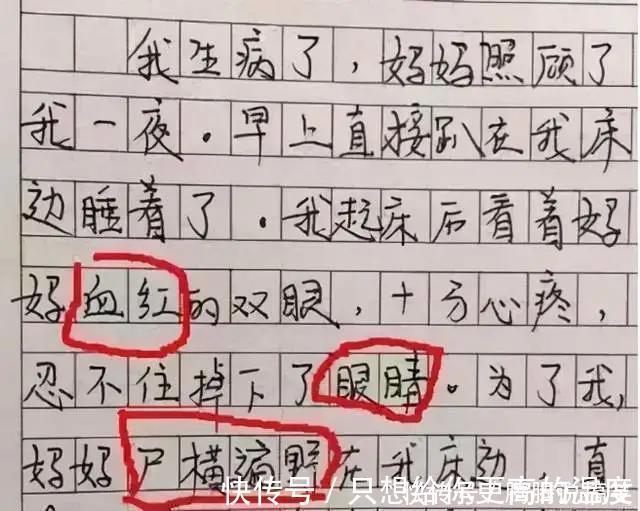 我生病了，妈妈照顾了
我一夜．早上直接趴在我床
边睡着了．我起床后看着妈
妈血红的双眼，十分心疼，
忍不住掉下了眼睛。为了我，
妈妈尸横遍野在我床边，直
快传号 / 只想给你更高的温度